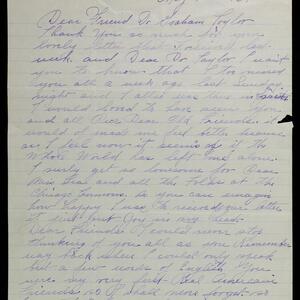 Dear Friend Dr Graham Taylor
Thank you so much for your
lovely letter that I received last
week. and Dear Dr Taylor I want
you to know that I too missed
you all a week ago last Sunday
night and I also was here in
would loved to have seen you
and all Dear Dear Old Friends. it
would of made me feel better because
as I feel now it seems as if the
Whole World has left me alone.
I surely get so lonesome for Dear
and all the Folks at the
Chicago Commons so you can imagine
how happy I was to received your letter
it
Dear Friends I could never stop
thinking of you all as I remember
way back when I could only speak
but a few words of English. You
were my very first Real American
Friends, as I shall never forget